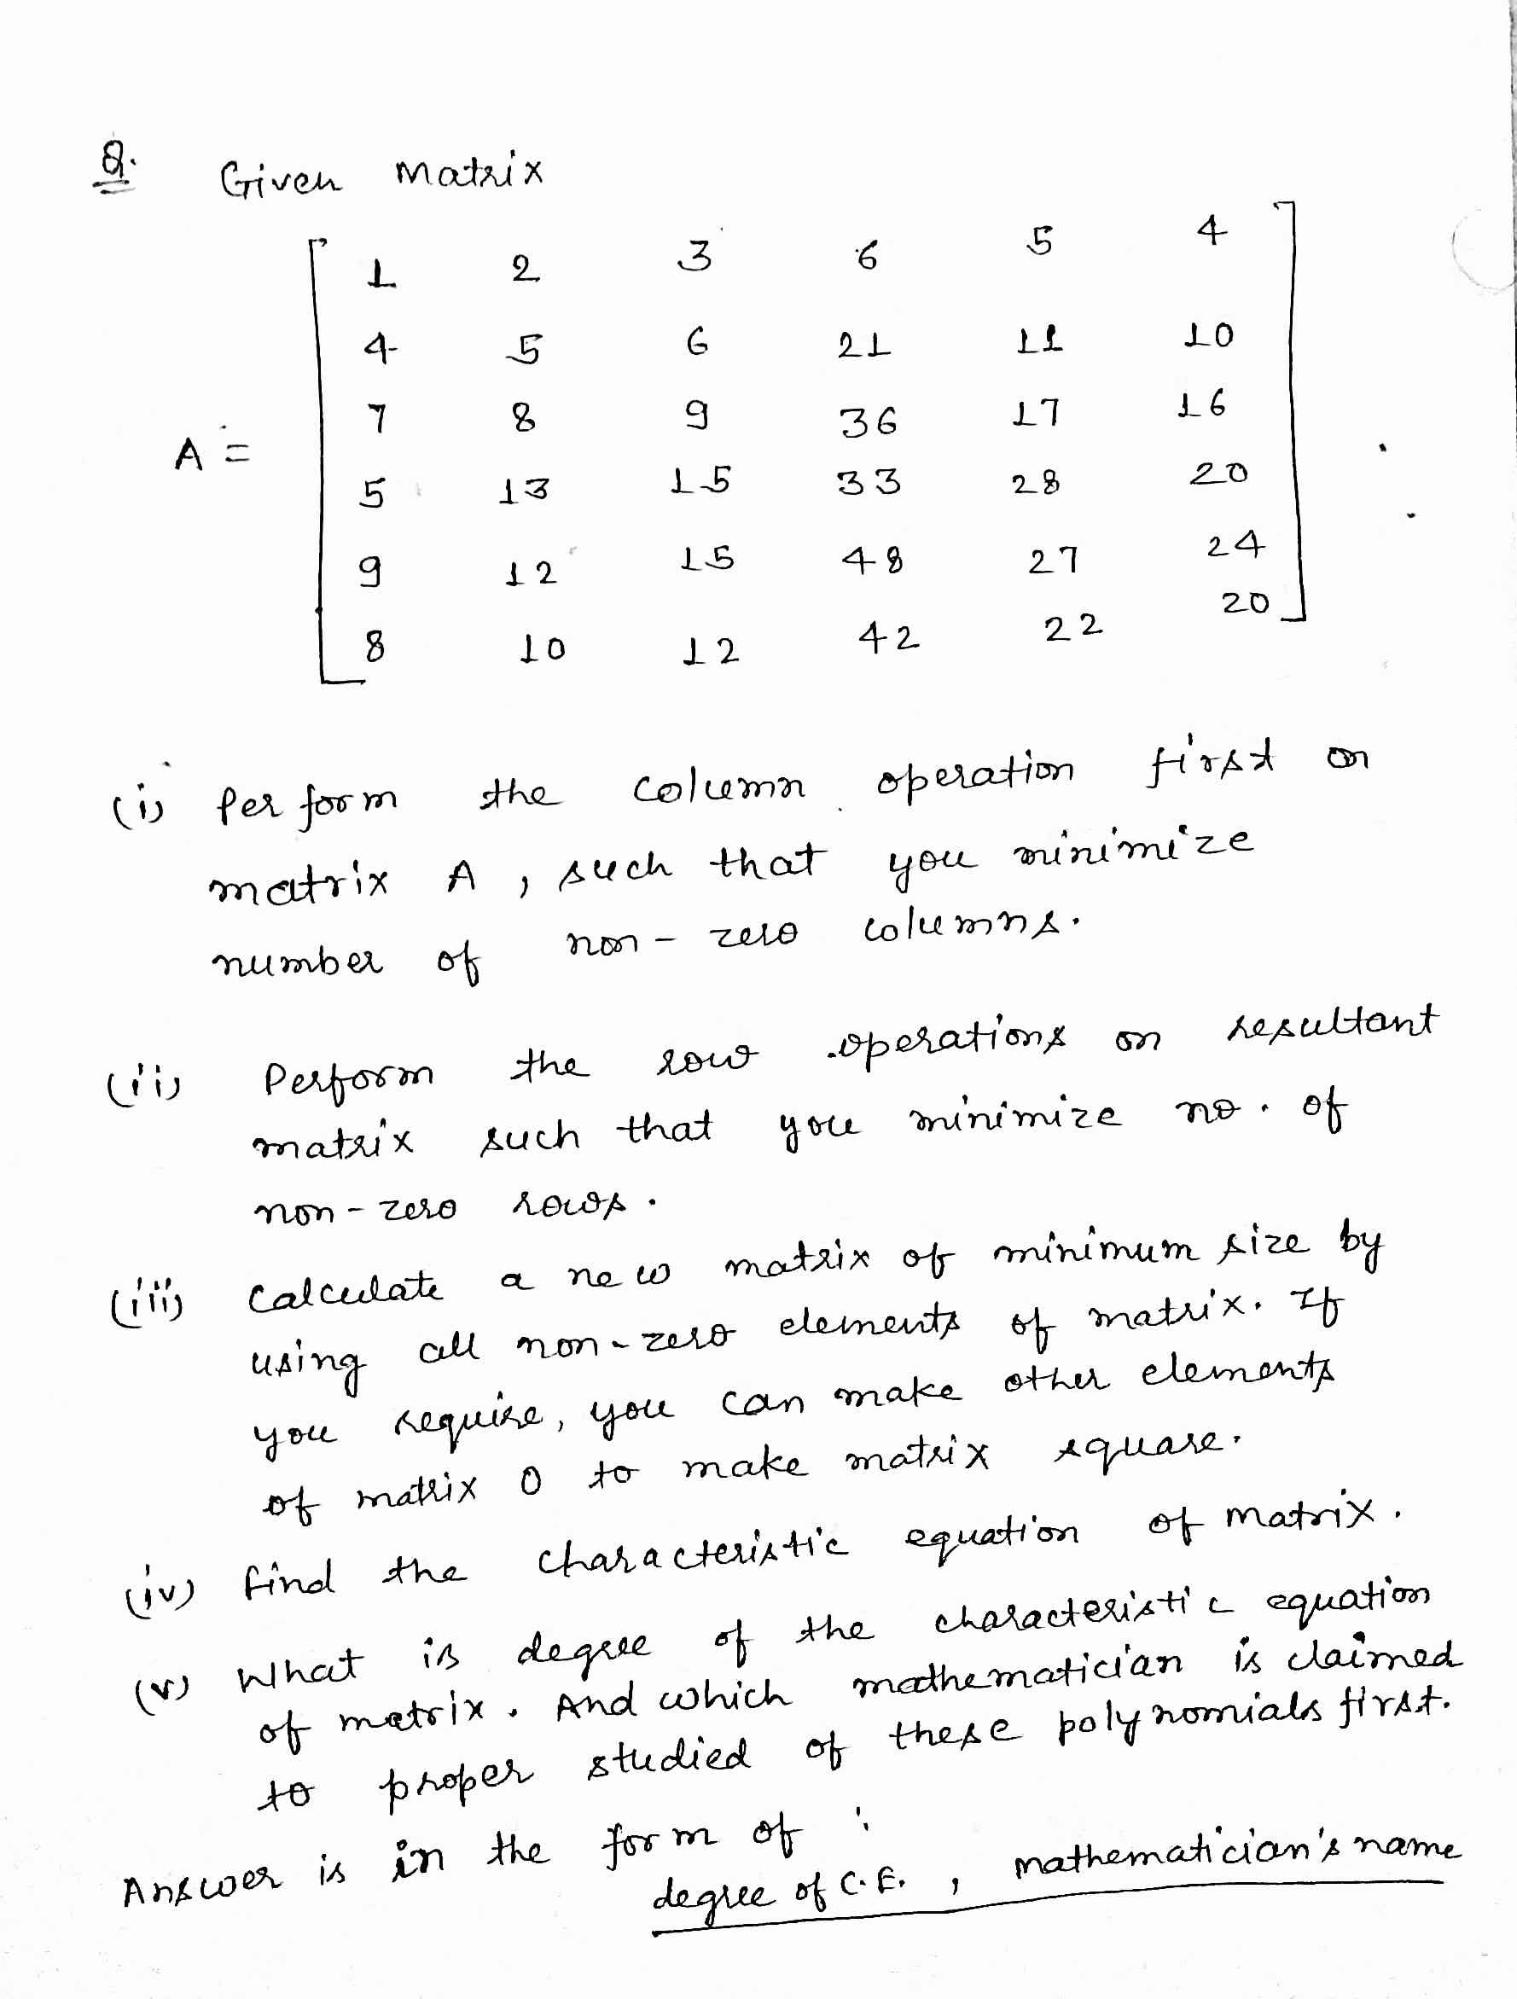 Q. Given Matrix
1 2 3 6 5 4
4 5 6 21 11 10
7 8 9 36 17 16
A =
5 13 15 33 28 20
9 12 15 48 27 24
8 10 12 42 22 20
(i) Perform the column operation first on
matrix A, such that you minimize
number of non-zero columns.
(ii) Perform the row operations on resultant
matrix such that you minimize no. of
non-zero rows.
(iii) Calculate a new matrix of minimum size by
using all non-zero elements of matrix. If
you require, you can make other elements
of matrix 0 to make matrix square.
(iv) find the characteristic equation of matrix.
(v) What is degree of the characteristic equation
of matrix. And which mathematician is claimed
to proper studied of these polynomials first.
Answer is in the form of :
degree of C.E. , mathematician's name